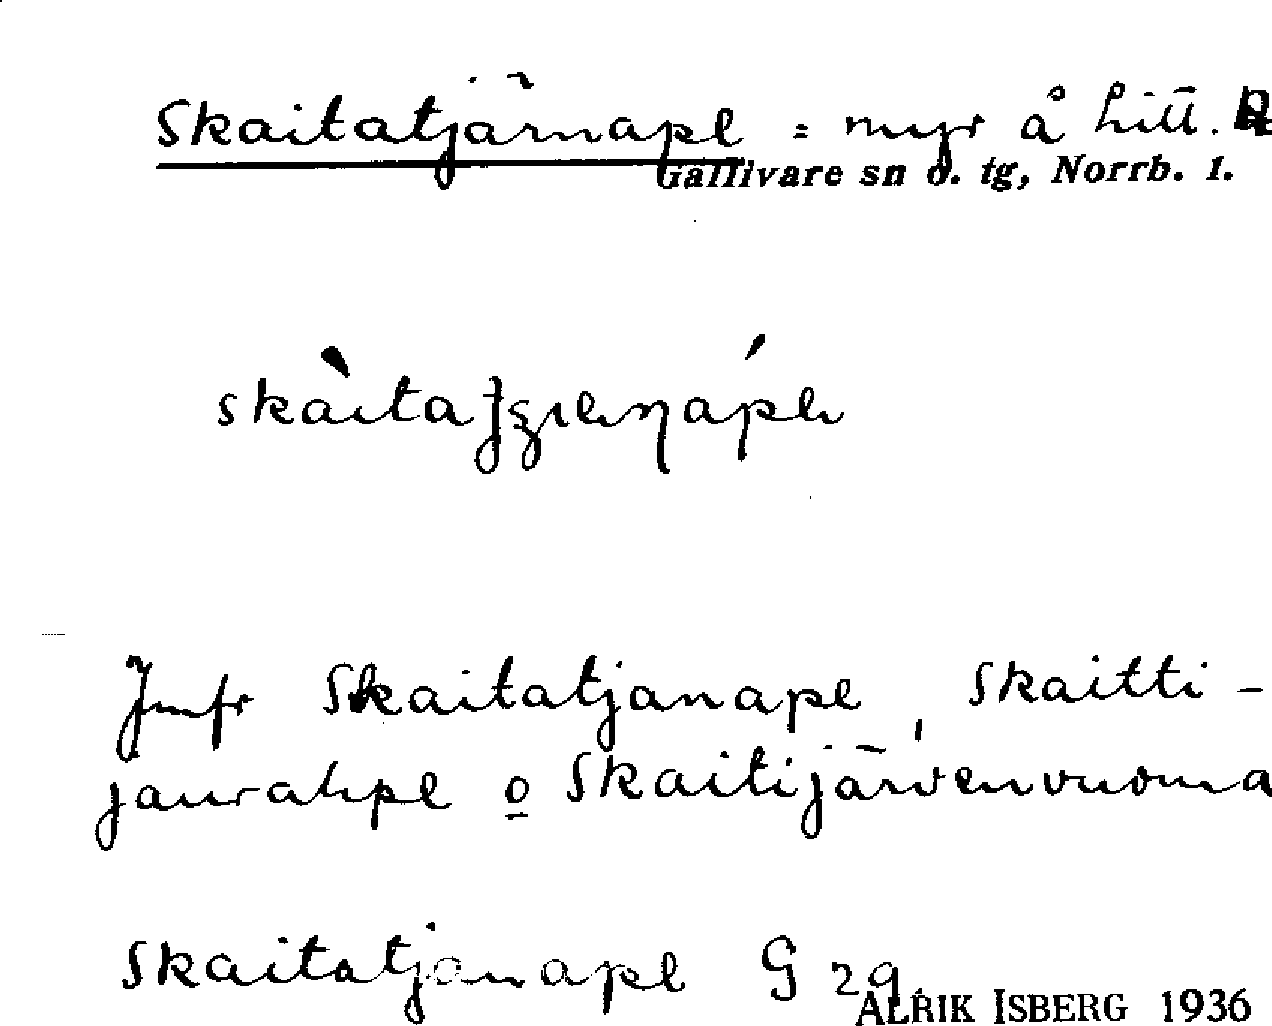 Skaitatjärnapl = myr å hitt.
Gällivare sn o. tg, Norrb. l.
Jmfr Skaitatjanapl, Skaitti-
jaurahpl o Skaitijärvenvuoma
Skaitatjanapl G 29
ALRIK ISBERG 1936